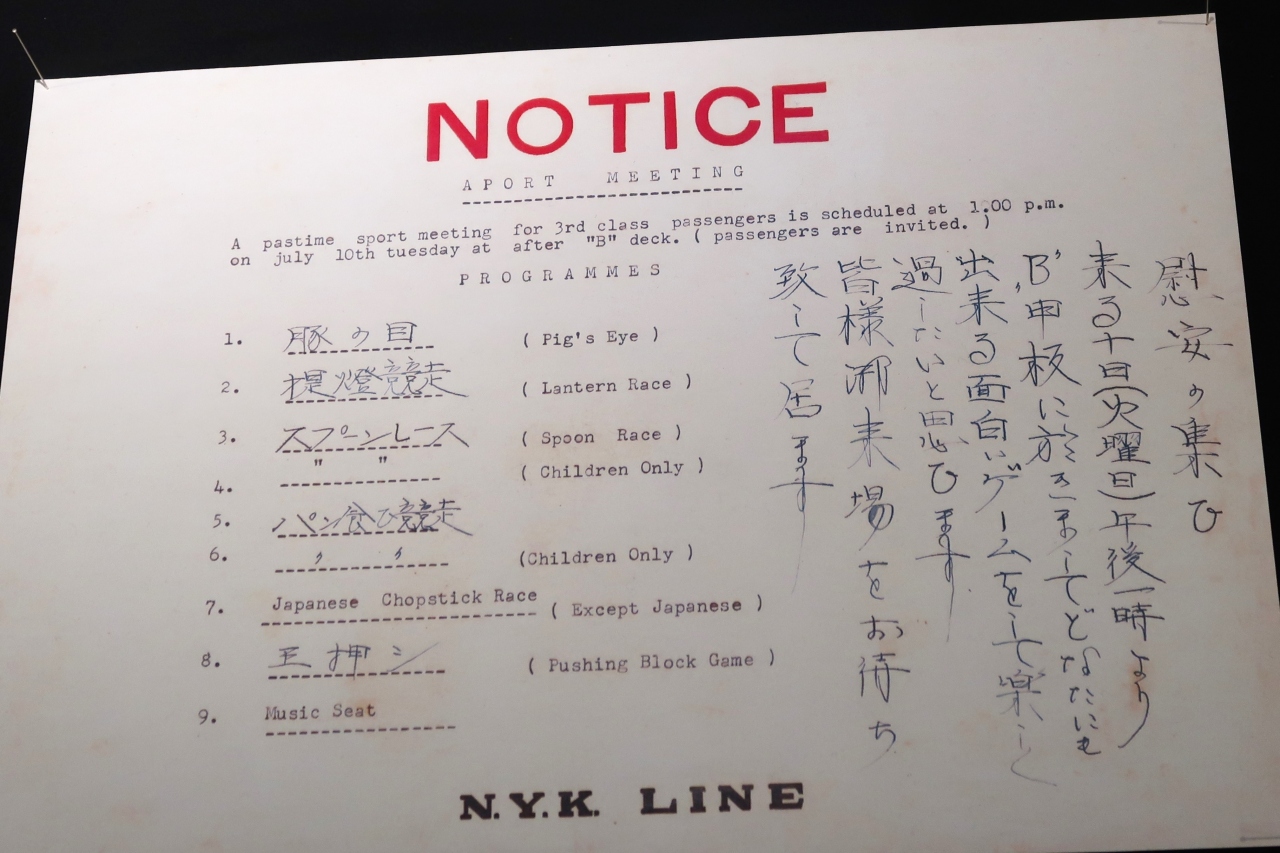 NOTICE
APORT MEETING
A pastime sport meeting for 3rd class passengers is scheduled at 1.00 p.m.
on july 10th tuesday at after "B" deck. ( passengers are invited. )
PROGRAMMES
1. 豚の目 ( Pig's Eye )
2. 提燈競走 ( Lantern Race )
3. スプーンレース ( Spoon Race )
4. " " ( Children Only )
5. パン食ひ競走
6. 〃 〃 (Children Only )
7. Japanese Chopstick Race ( Except Japanese )
8. 玉押シ ( Pushing Block Game )
9. Music Seat
慰安の集ひ
来る十日(火曜日)午後一時より
'B'甲板に於きましてどなたにも
出来る面白いゲームをして楽しく
過したいと思ひます
皆様御来場をお待ち
致して居ます
N.Y.K. LINE